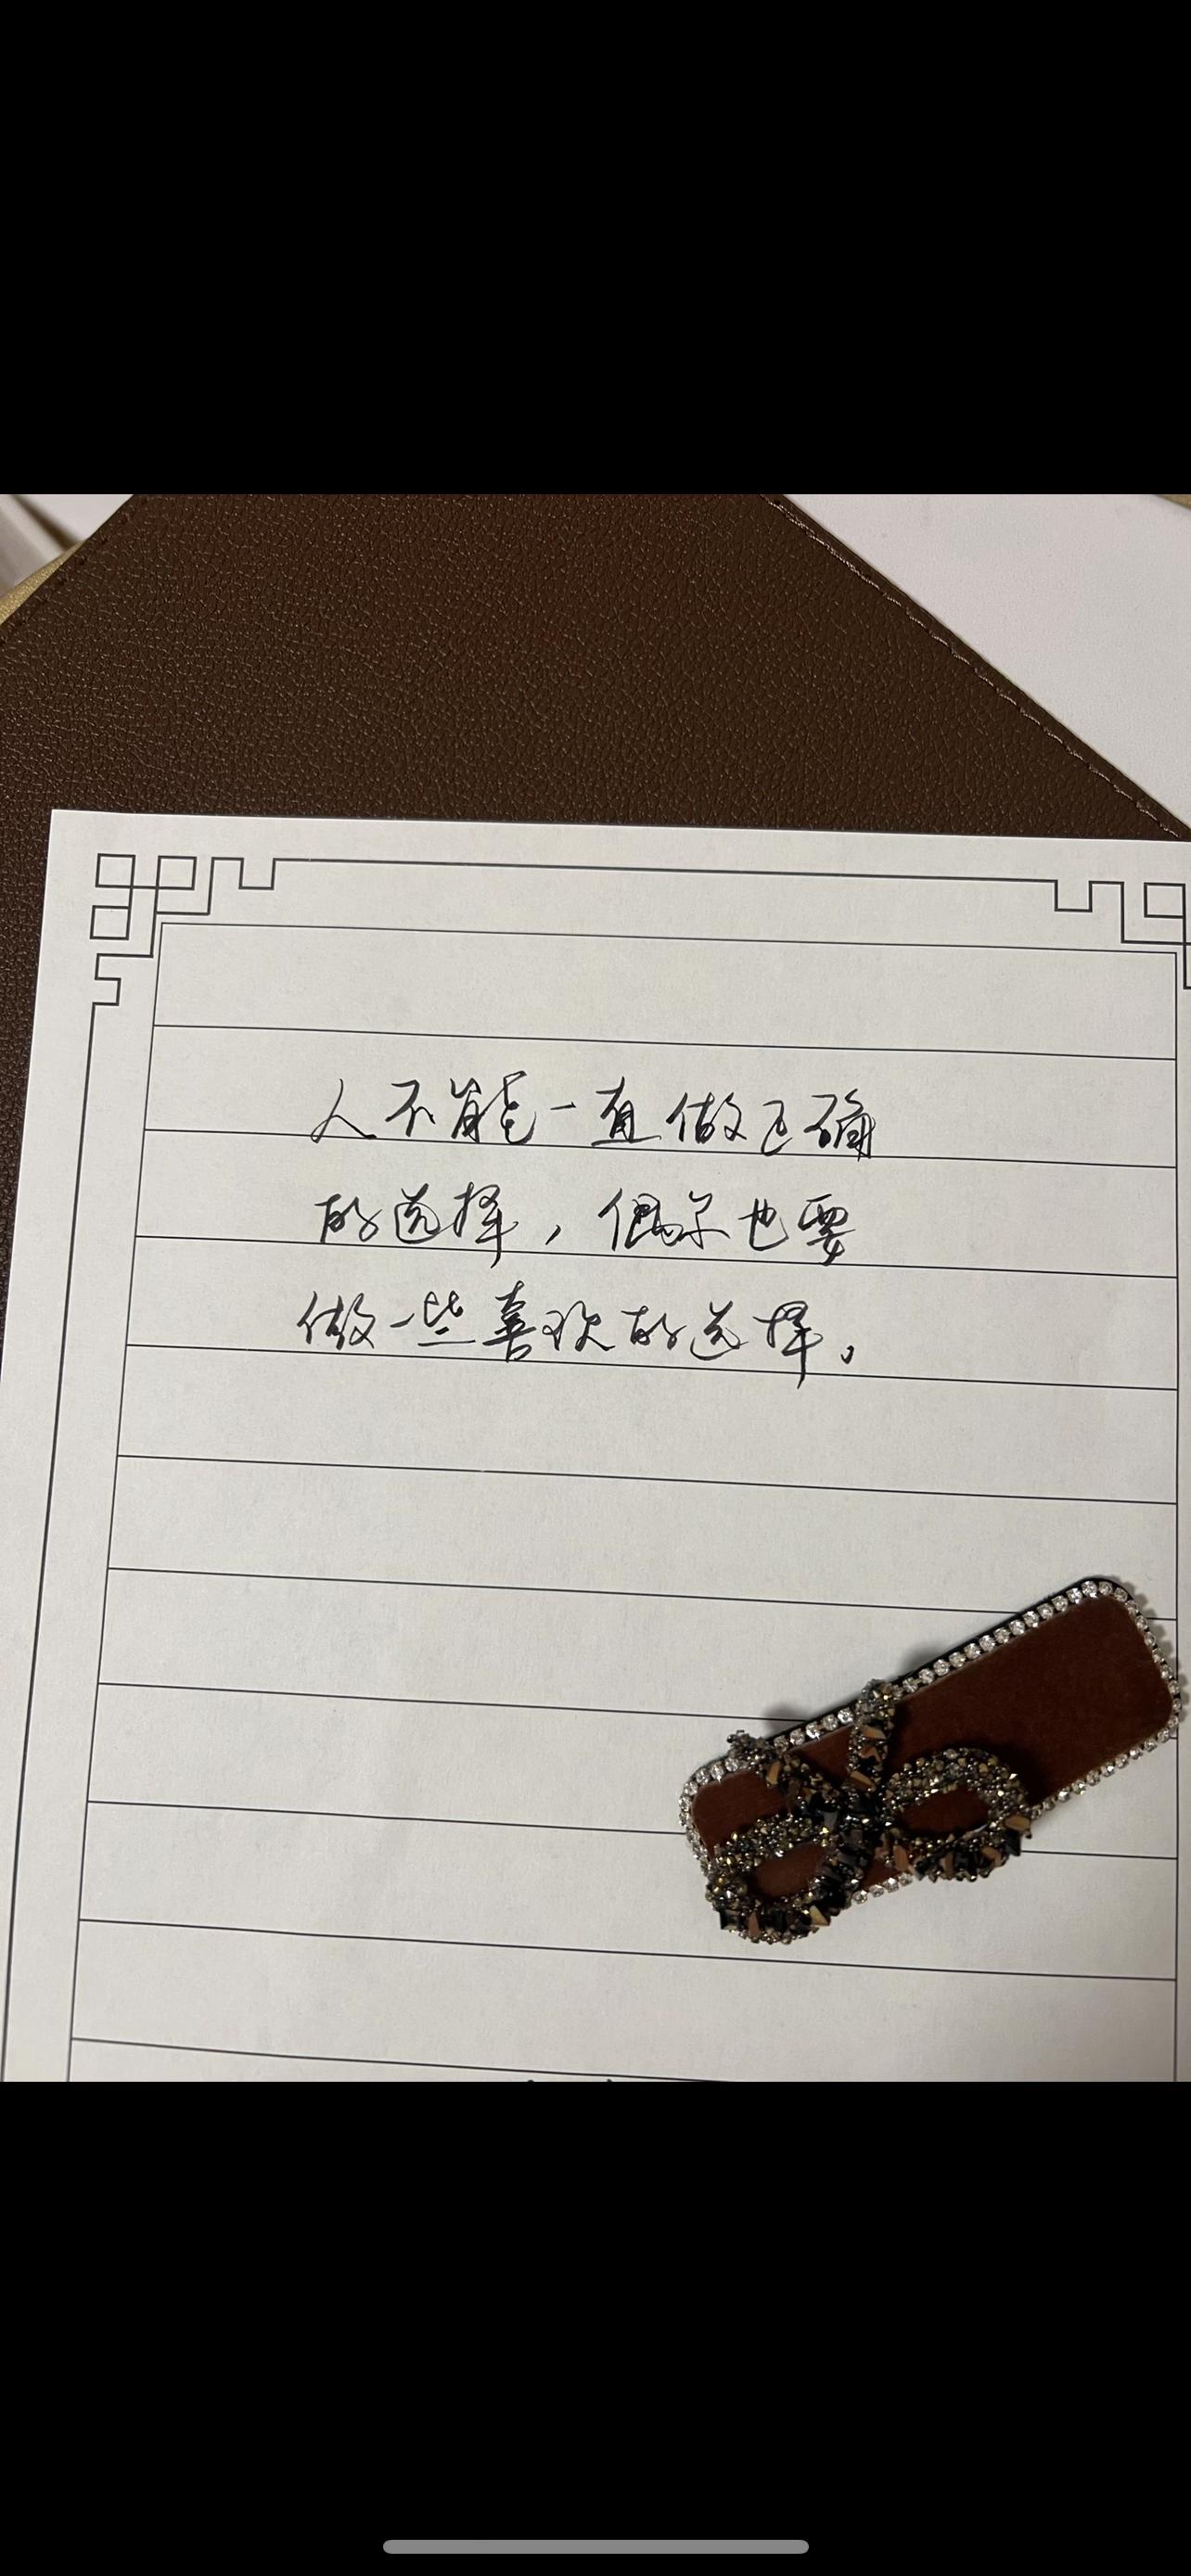 人不能一直做正确
的选择，偶尔也要
做一些喜欢的选择。